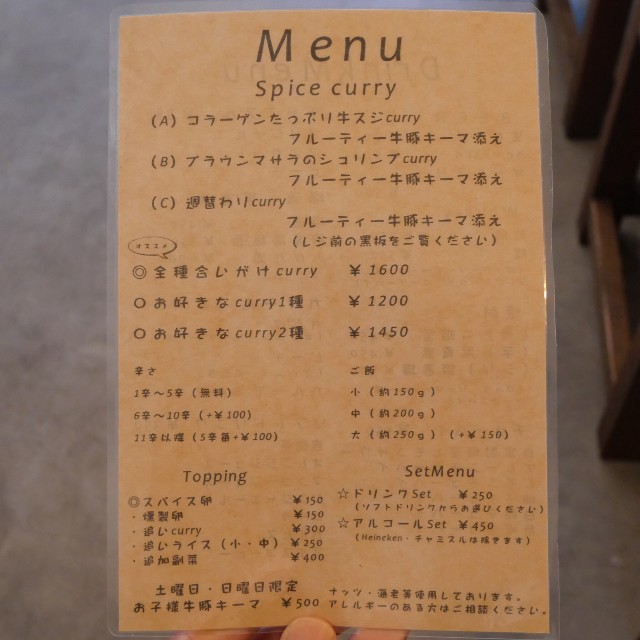 Menu
Spice curry
(A) コラーゲンたっぷり牛スジcurry
フルーティー牛豚キーマ添え
(B) ブラウンマサラのシュリンプcurry
フルーティー牛豚キーマ添え
(C) 週替わりcurry
フルーティー牛豚キーマ添え
(レジ前の黒板をご覧ください)
オススメ
◎全種合いがけcurry ¥1600
○お好きなcurry1種 ¥1200
○お好きなcurry2種 ¥1450
辛さ ご飯
1辛〜5辛(無料) 小(約150g)
6辛〜10辛(+¥100) 中(約200g)
11辛以降(5辛毎+¥100) 大(約250g)(+¥150)
Topping SetMenu
◎スパイス卵 ¥150
・燻製卵 ¥150
・追いcurry ¥300
・追いライス(小・中) ¥250
・追加副菜 ¥400
☆ドリンクSet ¥250
(ソフトドリンクからお選びください)
☆アルコールSet ¥450
(Heineken・チャミスルは除きます)
土曜日・日曜日限定
お子様牛豚キーマ ¥500
ナッツ・海老等使用しております。
アレルギーのある方はご相談ください。